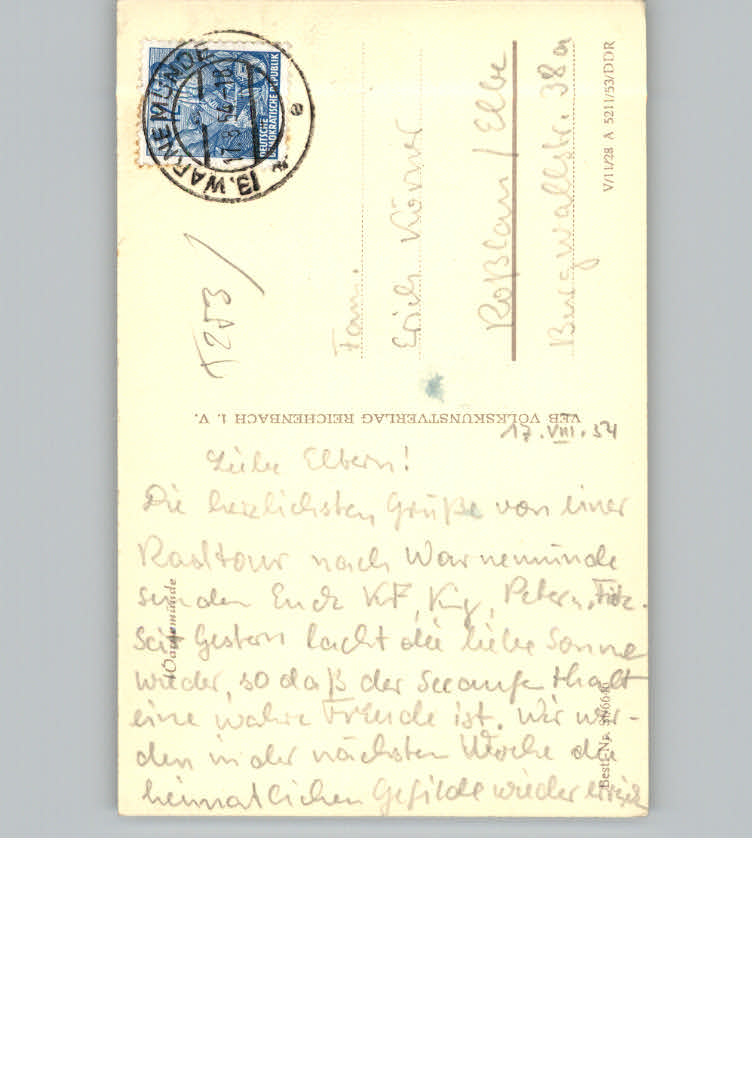 DEUTSCHE
DEMOKRATISCHE REPUBLIK
13. WARNEMÜNDE
17.8.54-18
e
T253/
Fam.
Erich Körner
Roßlau/Elbe
Burgwallstr. 38a
V/11/28 A 5211/53/DDR
VEB VOLKSKUNSTVERLAG REICHENBACH I. V.
17.VIII.54
Liebe Eltern!
Die herzlichsten Grüße von einer
Radtour nach Warnemünde
senden Euch KF, Peter u.
Seit Gestern lacht die liebe Sonne
wieder, so daß der Seeaufenthalt
eine wahre Freude ist. Wir wer-
den in der nächsten Woche die
heimatlichen Gefilde wieder
Warnemünde
Best.-Nr.